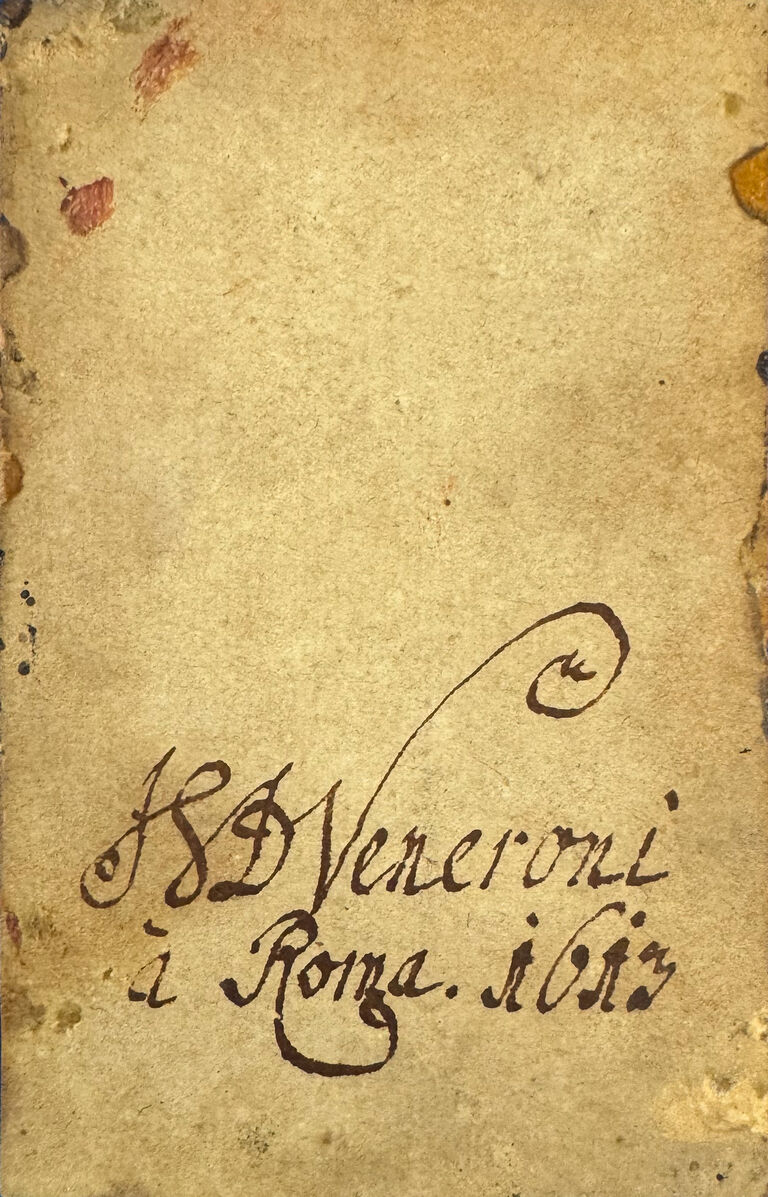 JSD Veneroni
à Roma. 1613